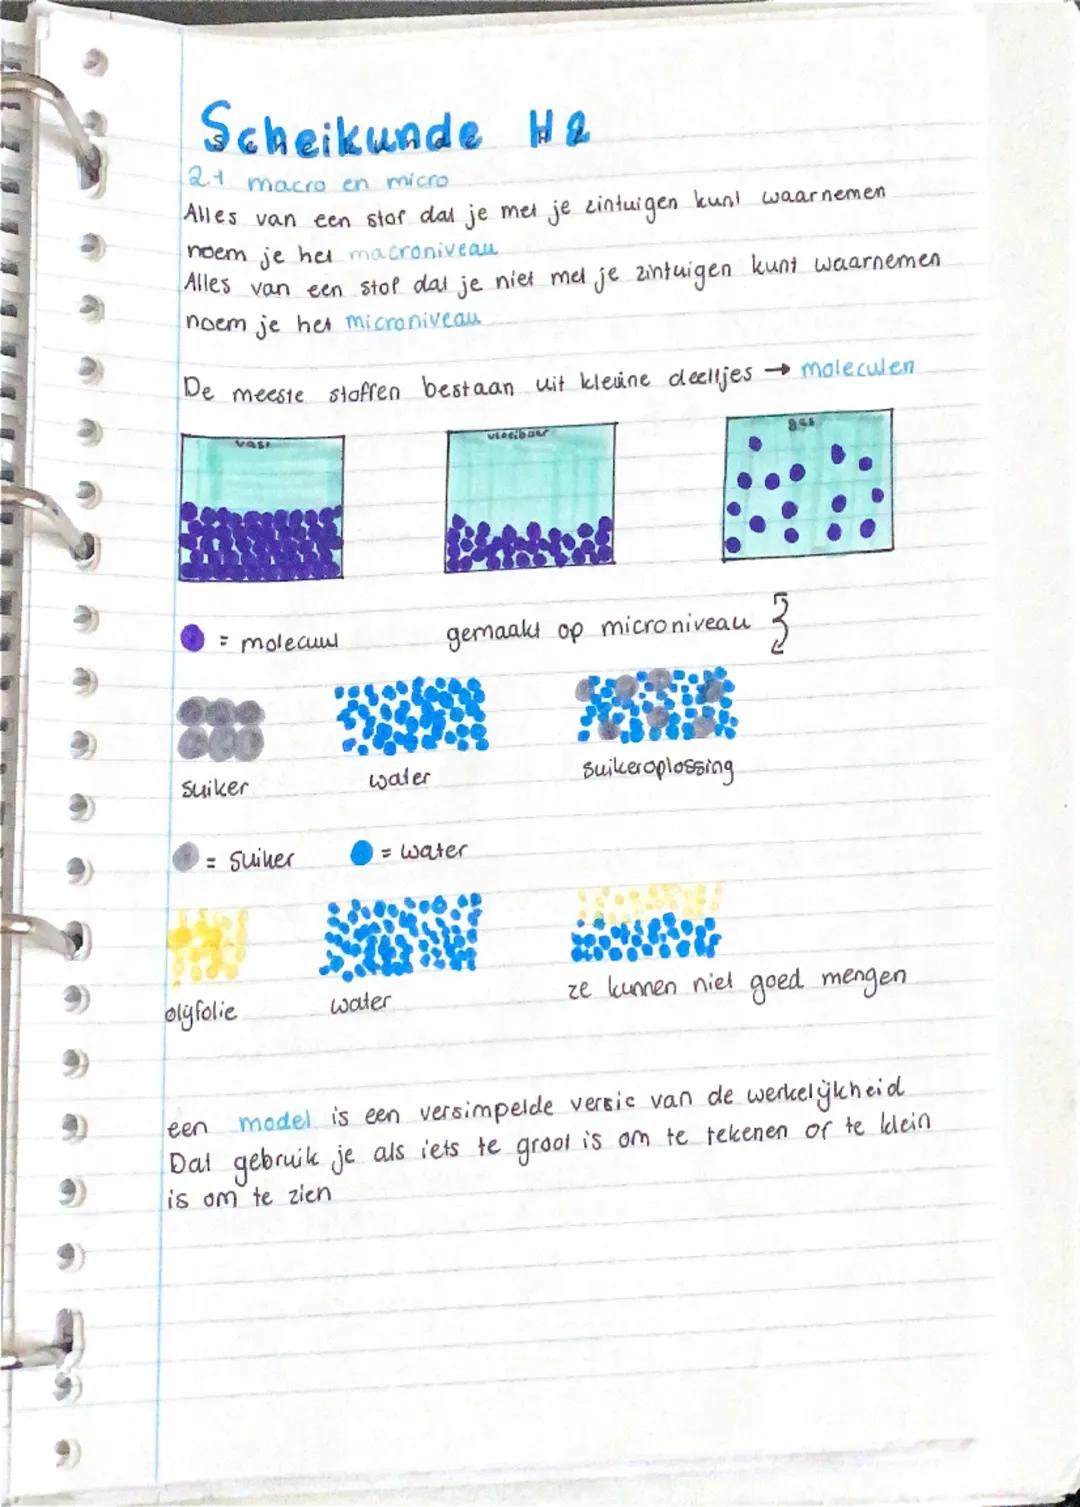 Scheikunde H2
2.1 macro en micro
Alles van een stof dat je met je zintuigen kunt waarnemen
noem je het macroniveau
Alles van een stof dat je niet met je zintuigen kunt waarnemen
noem je het microniveau
De meeste stoffen bestaan uit kleine deeltjes → moleculen
vast
vloeibaar
gas
= molecuul
gemaakt op microniveau
suiker
water
suikeroplossing
= suiker
= water
olijfolie
water
ze kunnen niet goed mengen
een model is een versimpelde versie van de werkelijkheid
Dat gebruik je als iets te groot is om te tekenen of te klein
is om te zien